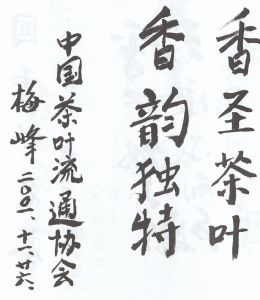 香圣茶叶
香韵独特
中国茶叶流通协会
梅峰 二〇〇一、十一、廿六、